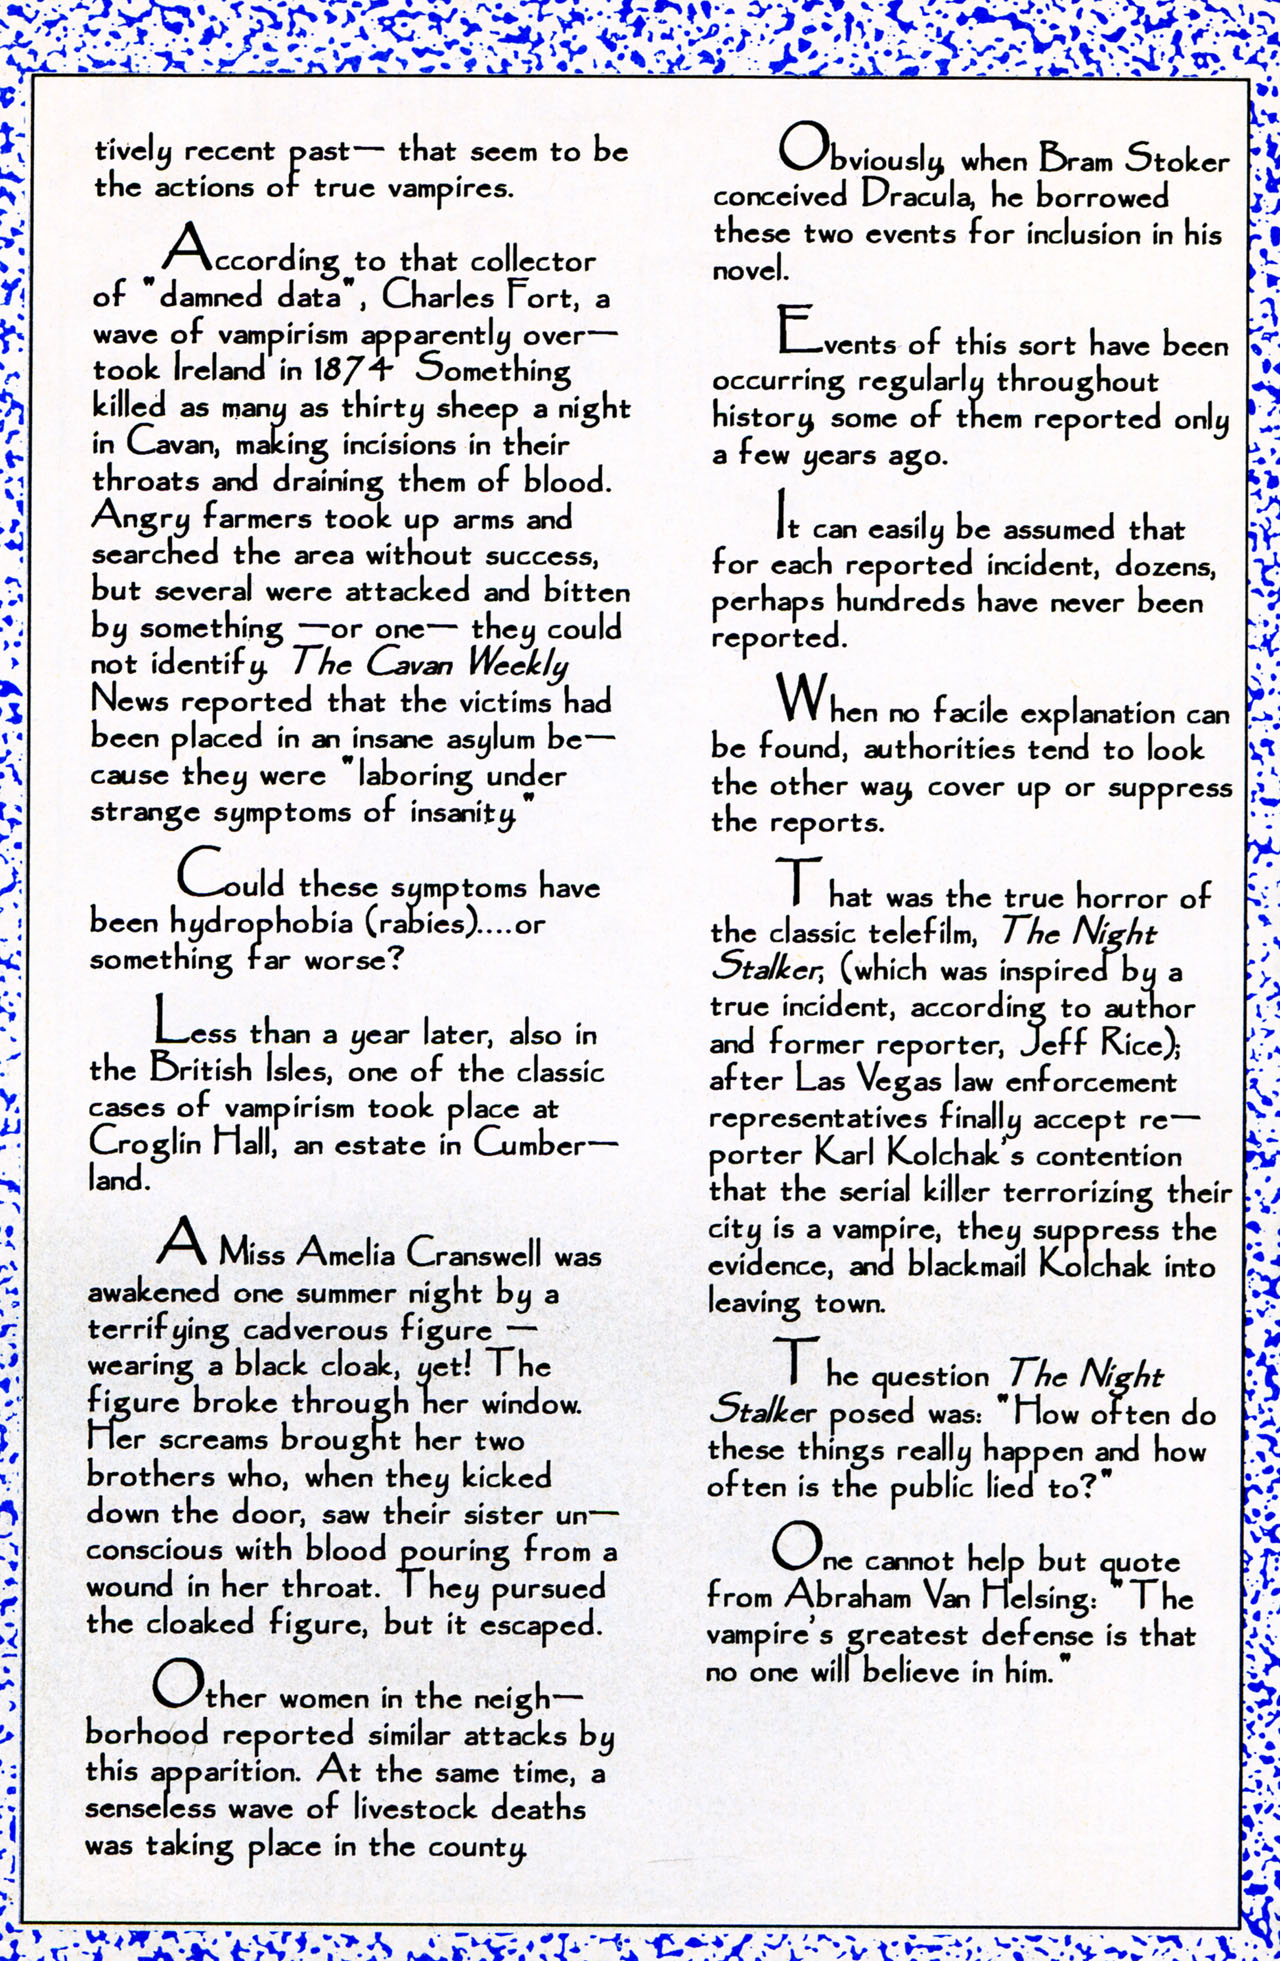 tively recent past— that seem to be
the actions of true vampires.
According to that collector
of "damned data", Charles Fort, a
wave of vampirism apparently over—
took Ireland in 1874 Something
killed as many as thirty sheep a night
in Cavan, making incisions in their
throats and draining them of blood.
Angry farmers took up arms and
searched the area without success,
but several were attacked and bitten
by something —or one— they could
not identify. The Cavan Weekly
News reported that the victims had
been placed in an insane asylum be—
cause they were "laboring under
strange symptoms of insanity."
Could these symptoms have
been hydrophobia (rabies)....or
something far worse?
Less than a year later, also in
the British Isles, one of the classic
cases of vampirism took place at
Croglin Hall, an estate in Cumber—
land.
A Miss Amelia Cranswell was
awakened one summer night by a
terrifying cadverous figure —
wearing a black cloak, yet! The
figure broke through her window.
Her screams brought her two
brothers who, when they kicked
down the door, saw their sister un—
conscious with blood pouring from a
wound in her throat. They pursued
the cloaked figure, but it escaped.
Other women in the neigh—
borhood reported similar attacks by
this apparition. At the same time, a
senseless wave of livestock deaths
was taking place in the county.
Obviously, when Bram Stoker
conceived Dracula, he borrowed
these two events for inclusion in his
novel.
Events of this sort have been
occurring regularly throughout
history, some of them reported only
a few years ago.
It can easily be assumed that
for each reported incident, dozens,
perhaps hundreds have never been
reported.
When no facile explanation can
be found, authorities tend to look
the other way, cover up or suppress
the reports.
That was the true horror of
the classic telefilm, The Night
Stalker, (which was inspired by a
true incident, according to author
and former reporter, Jeff Rice);
after Las Vegas law enforcement
representatives finally accept re—
porter Karl Kolchak's contention
that the serial killer terrorizing their
city is a vampire, they suppress the
evidence, and blackmail Kolchak into
leaving town.
The question The Night
Stalker posed was: "How often do
these things really happen and how
often is the public lied to?"
One cannot help but quote
from Abraham Van Helsing: "The
vampire's greatest defense is that
no one will believe in him."